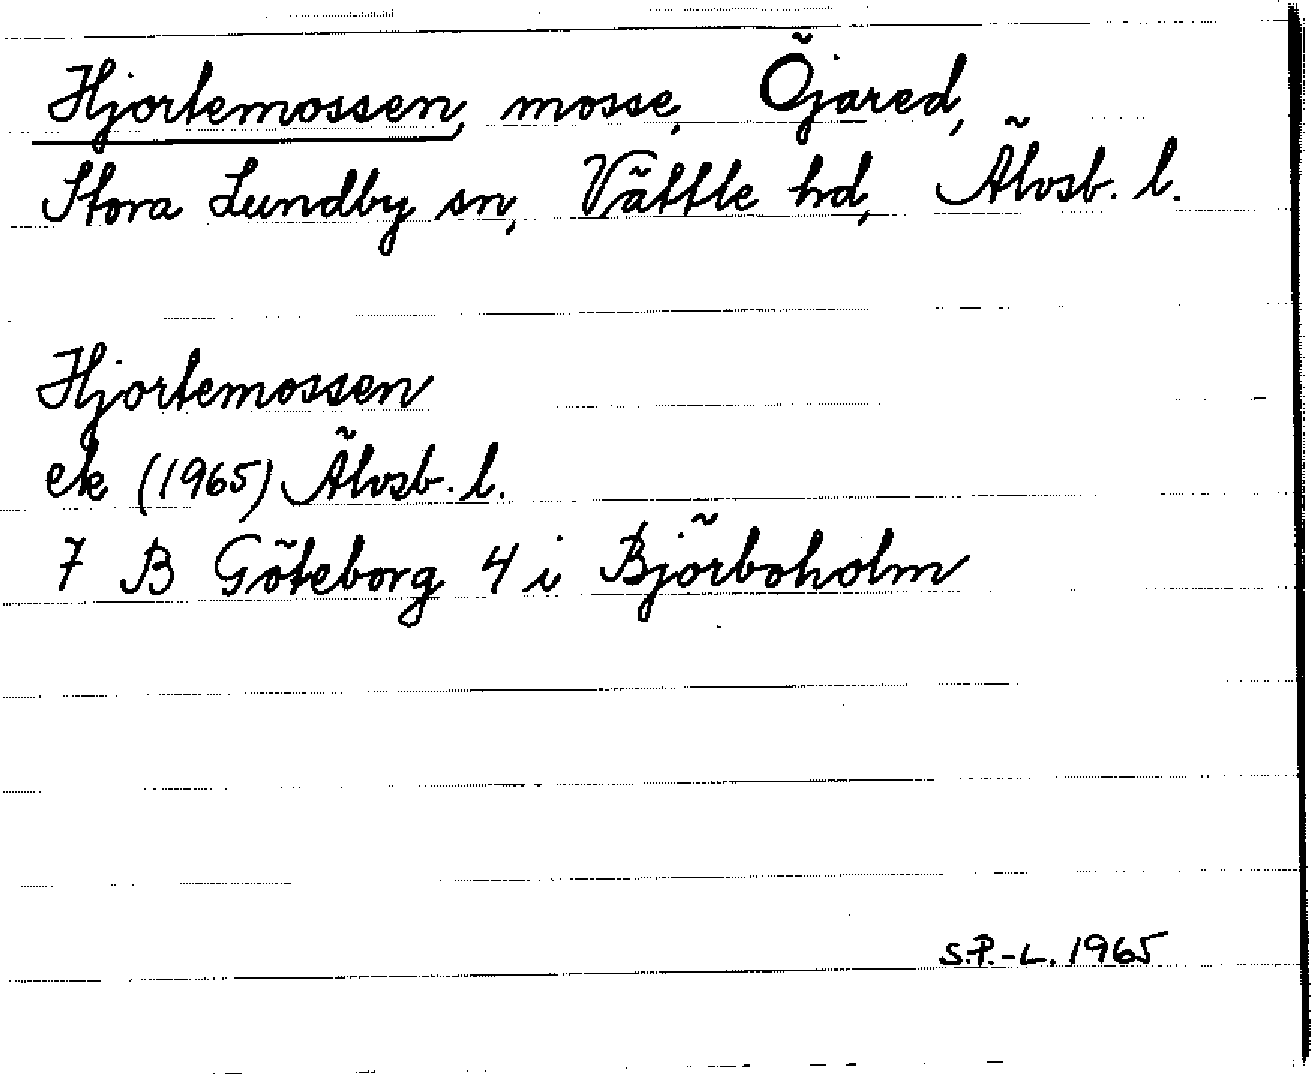 Hjortemossen, mosse, Öjared,
Stora Lundby sn, Vättle hd, Älvsb. l.
Hjortemossen
ek (1965) Älvsb. l.
7 B Göteborg 4 i Björboholm
S.P.-L. 1965